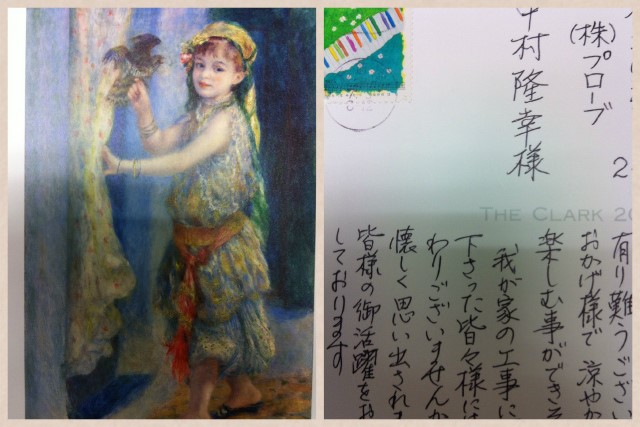 (株)プローブ
中村隆幸様
2
THE CLARK 20
有り難うござい
おかげ様で 涼やか
楽しむ事ができそ
我が家の工事に
下さった皆々様に
わりございませんか
懐しく思い出され
皆様の御活躍をお
しております